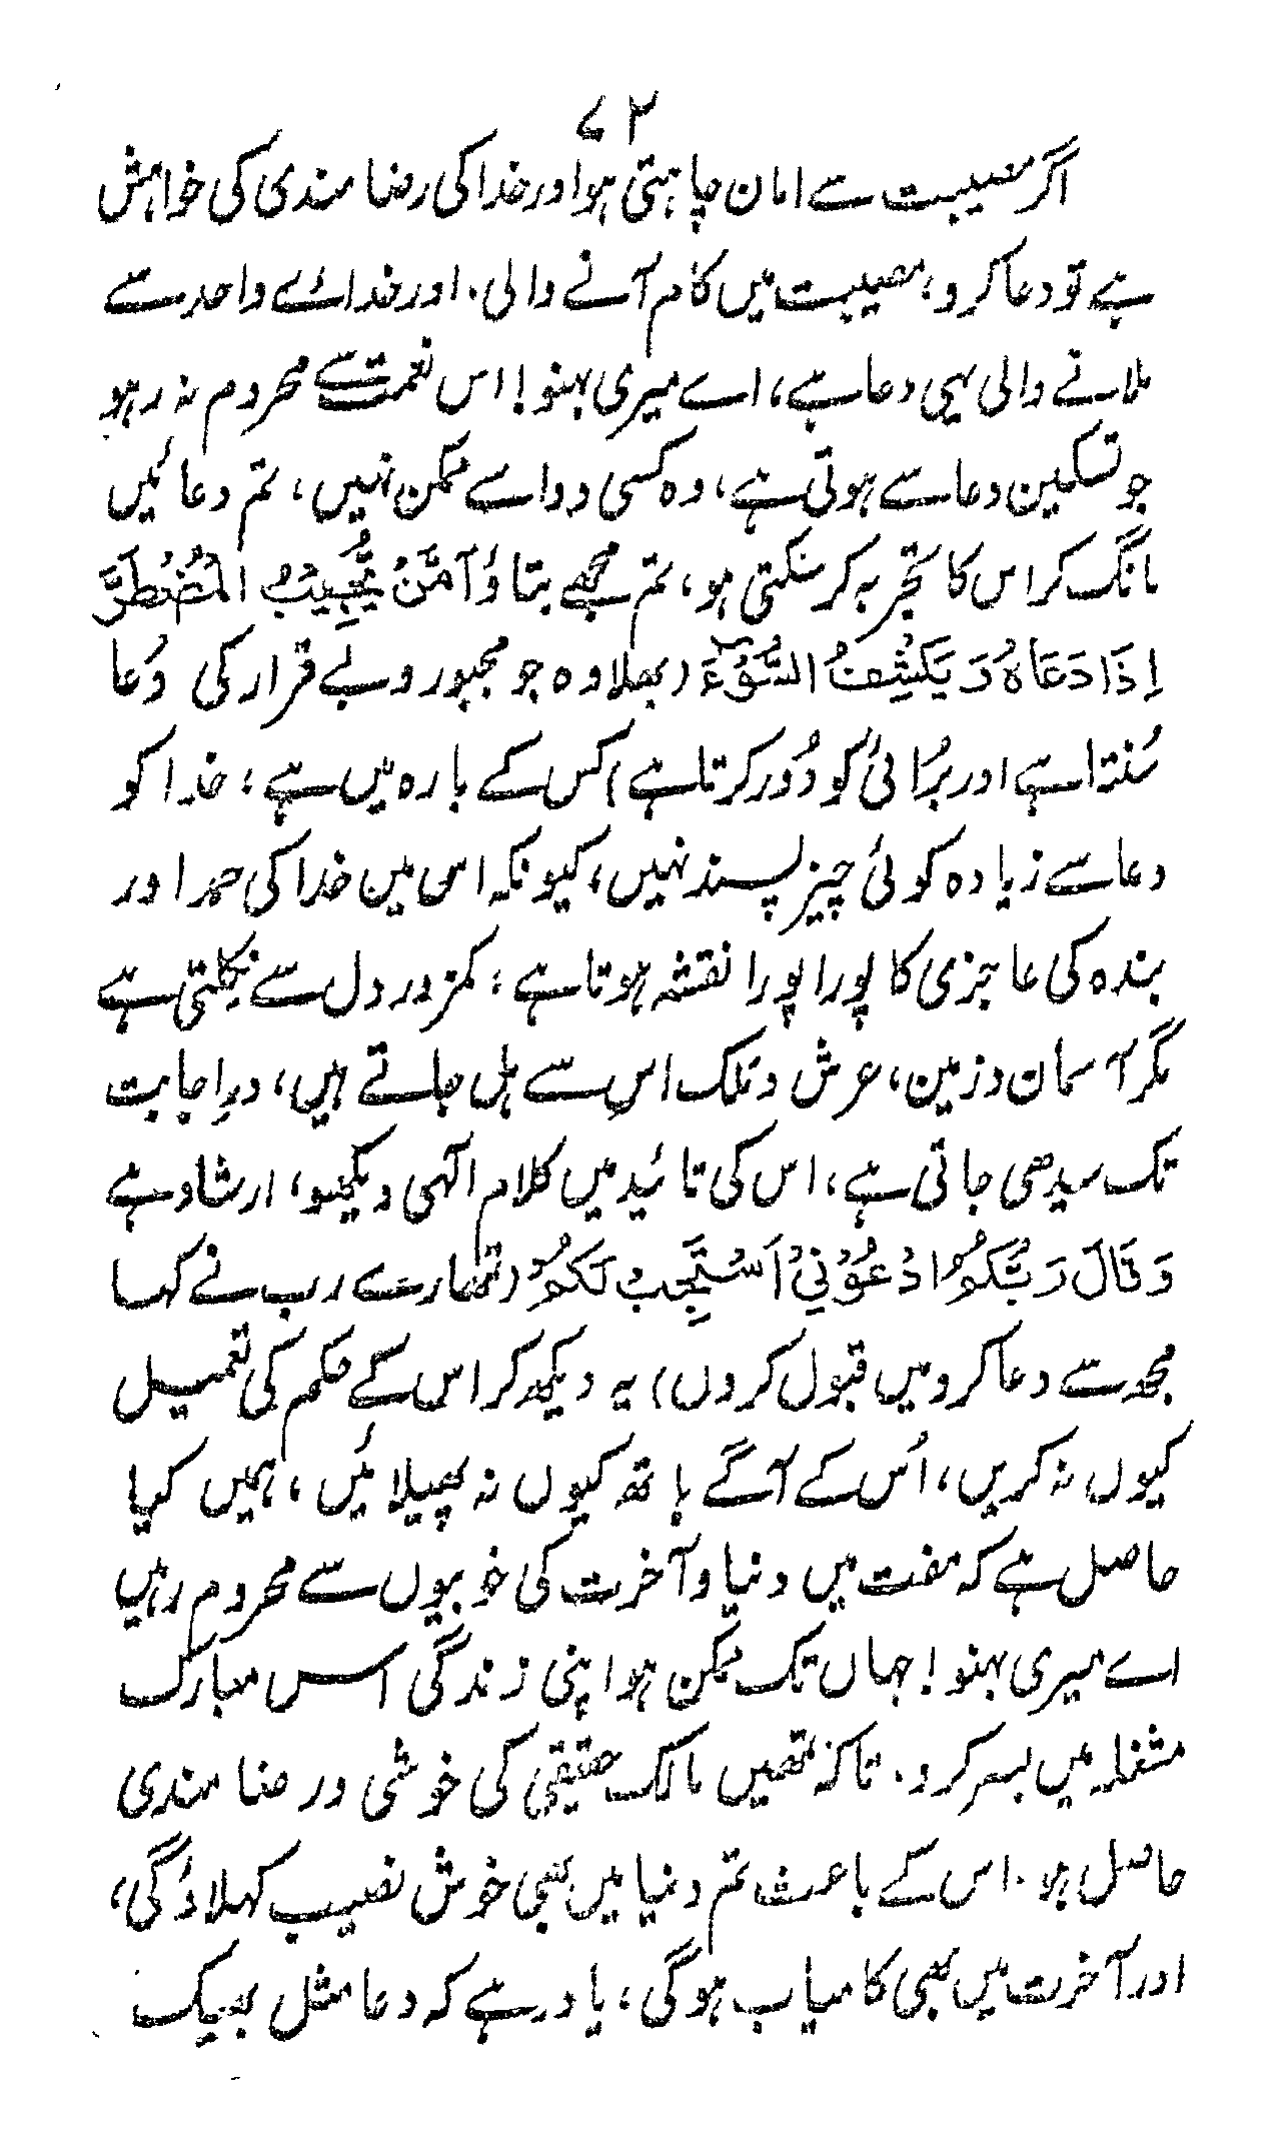 ۷۲
اگر مصیبت سے امان چاہتی ہو اور خدا کی رضا مندی کی خواہش
ہے تو دعا کرو، مصیبت میں کام آنے والی۔ اور خدائے واحد سے
ملانے والی یہی دعا ہے، اے میری بہنو! اس نعمت سے محروم نہ رہو
جو تسکین دعا سے ہوتی ہے، وہ کسی دوا سے ممکن نہیں، تم دعائیں
مانگ کر اس کا تجربہ کر سکتی ہو، تم مجھے بتاؤ اَمَّنْ یُّجِیْبُ الْمُضْطَرَّ
اِذَا دَعَاہُ وَ یَکْشِفُ السُّوْءَ (بھلا وہ جو مجبور و بے قرار کی دُعا
سُنتا ہے اور بُرائی کو دُور کرتا ہے) کس کے بارہ میں ہے؛ خدا کو
دعا سے زیادہ کوئی چیز پسند نہیں، کیونکہ اس میں خدا کی حمد اور
بندہ کی عاجزی کا پورا پورا نقشہ ہوتا ہے؛ کمزور دل سے نکلتی ہے
مگر آسمان و زمین، عرش و ملک اس سے ہل جاتے ہیں، درِ اجابت
تک سیدھی جاتی ہے، اس کی تائید میں کلام الٰہی دیکھو، ارشاد ہے
وَ قَالَ رَبُّکُمُ ادْعُوْنِیْ اَسْتَجِبْ لَکُمْ (تمھارے رب نے کہا
مجھ سے دعا کرو میں قبول کروں) یہ دیکھ کر اس کے حکم کی تعمیل
کیوں نہ کریں، اُس کے آگے ہاتھ کیوں نہ پھیلائیں، ہمیں کیا
حاصل ہے کہ مفت میں دنیا و آخرت کی خوبیوں سے محروم رہیں
اے میری بہنو! جہاں تک ممکن ہو اپنی زندگی اس مبارک
مشغلہ میں بسر کرو۔ تاکہ تمھیں مالک حقیقی کی خوشی و رضا مندی
حاصل ہو۔ اس کے باعث تم دنیا میں بھی خوش نصیب کہلاؤ گی،
اور آخرت میں بھی کامیاب ہوگی، یاد رہے کہ دعا مثل بھیک